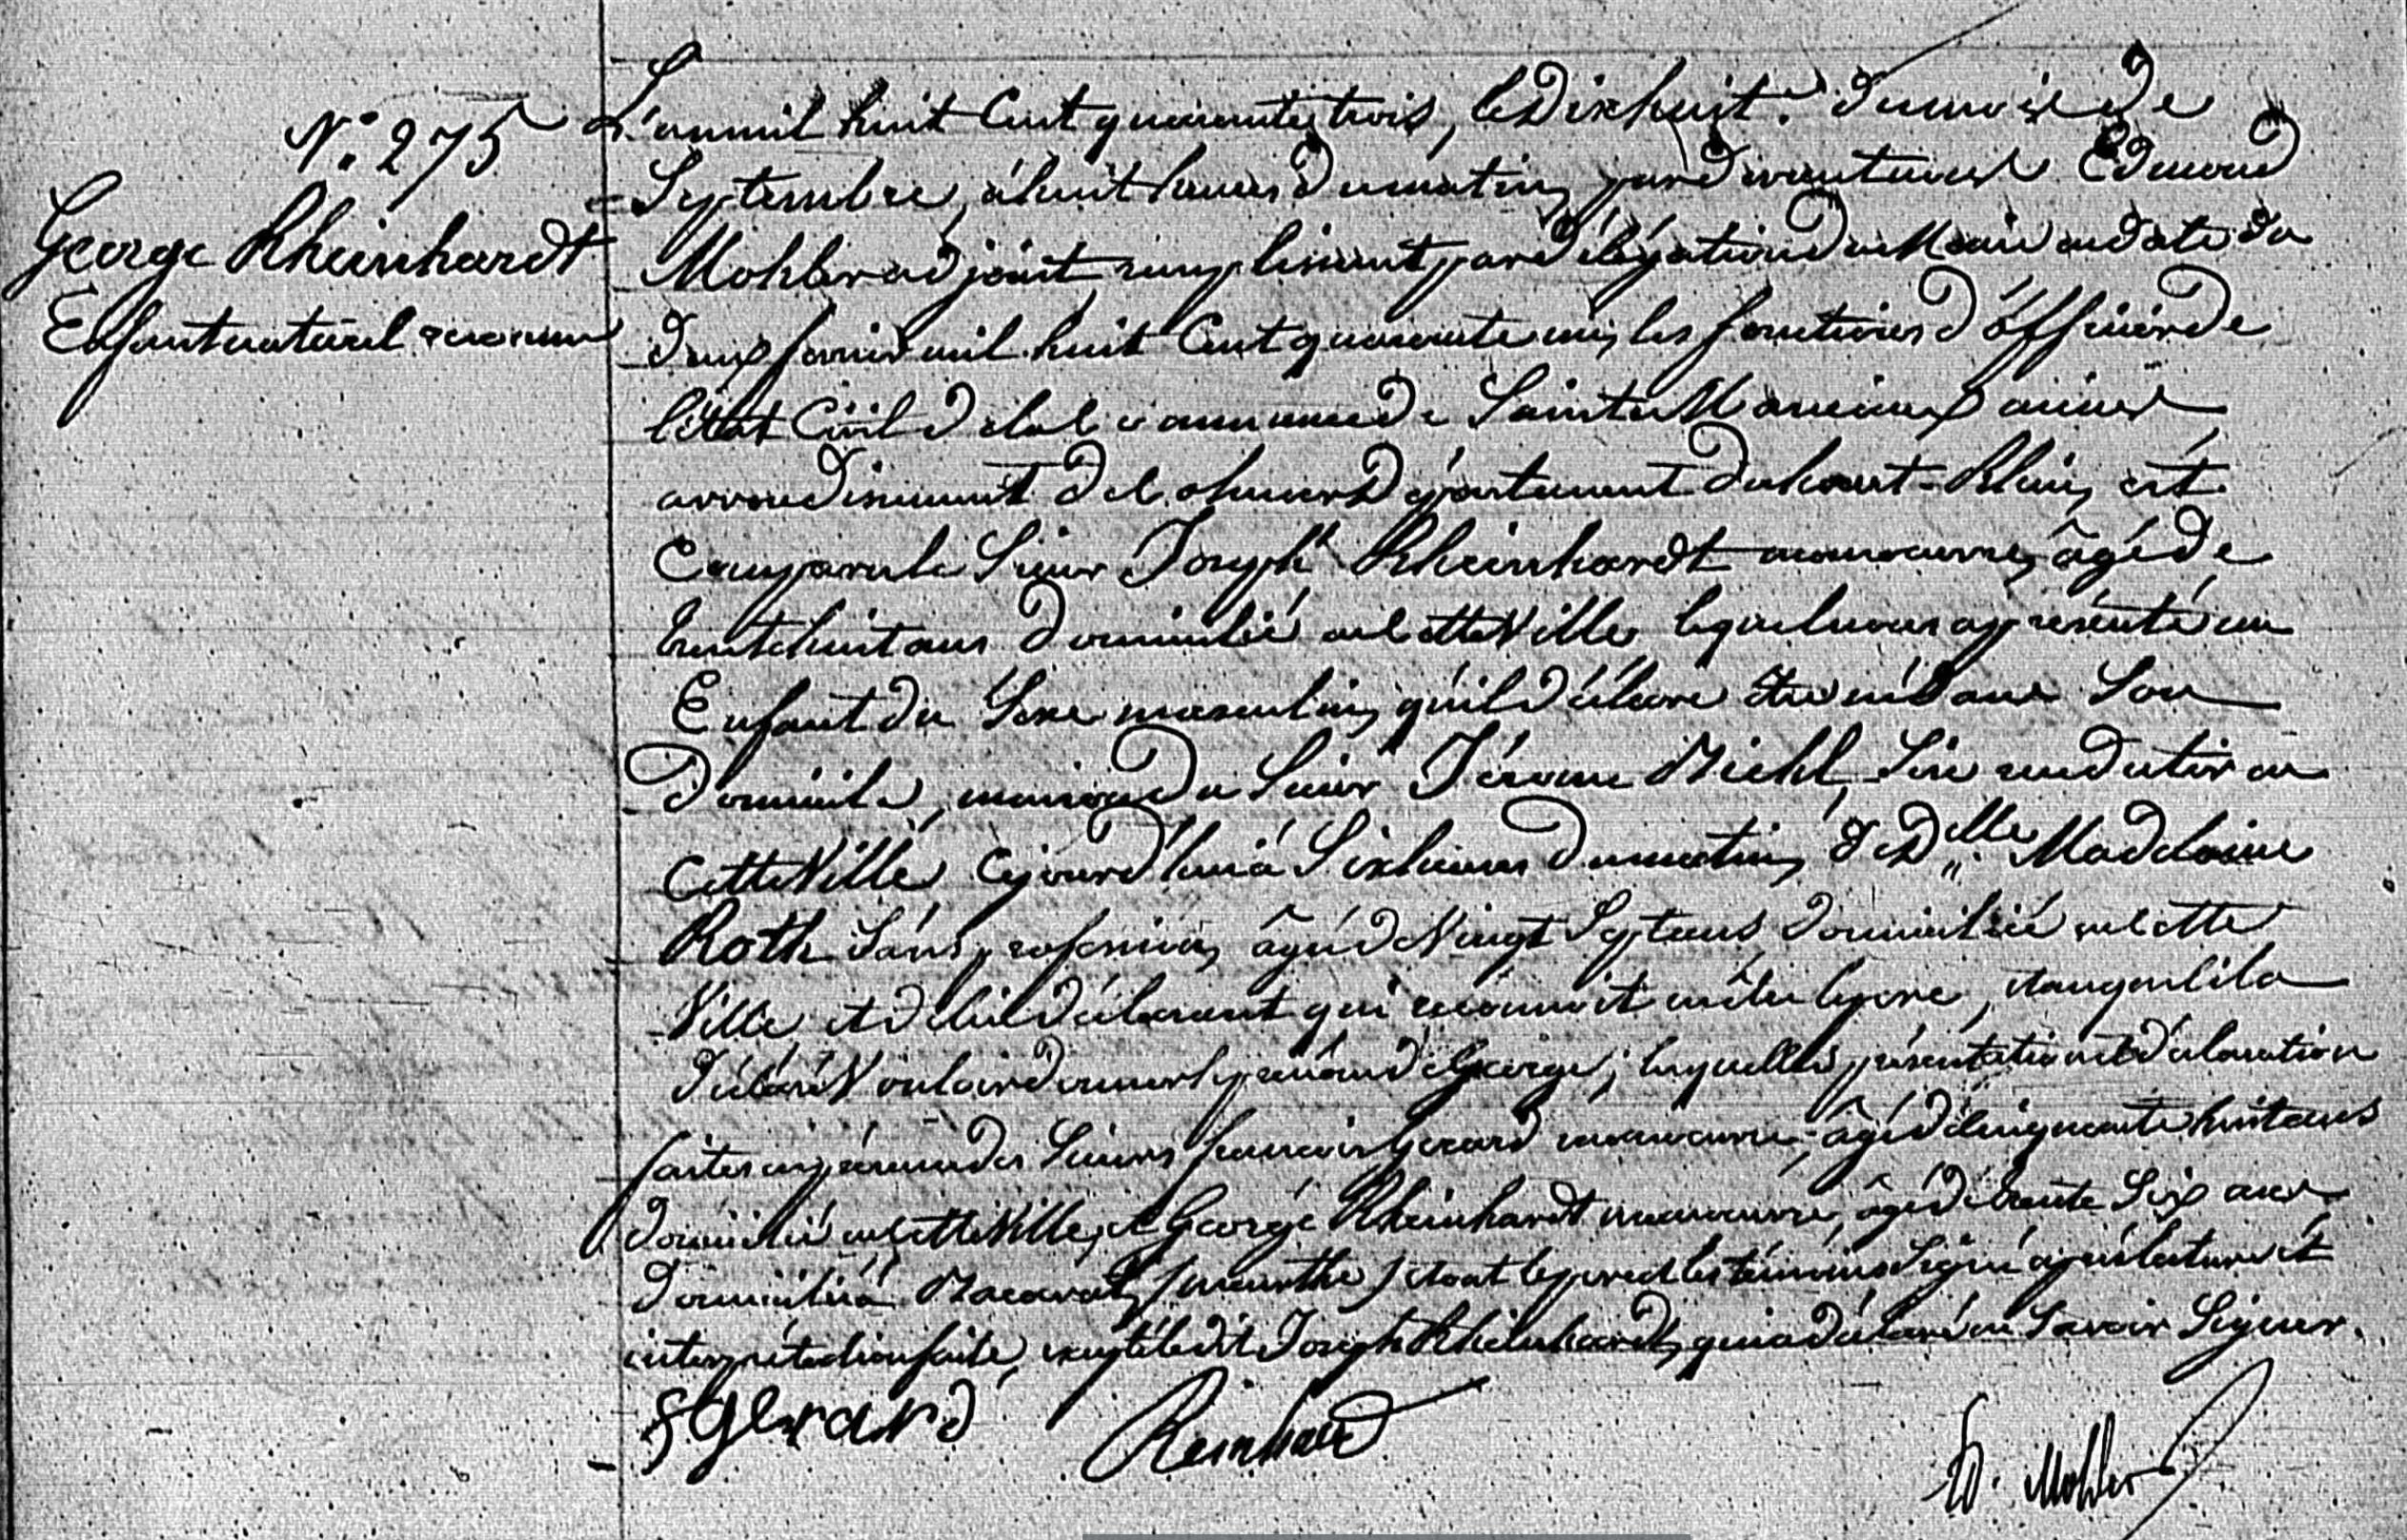 N.° 275
George Rheinhardt
Enfant naturel reconnu
L'an mil huit Cent quarante trois, le Dix huit. du mois de
Septembre, à huit heures du matin, pardevant nous Edmond
Mohler adjoint remplissant par délégation du Maire en date du
deux janvier mil huit Cent quarante un, les fonctions d'officier de
l'état Civil de la Commune de Sainte Marie aux mines
arrondissement de Colmar Département du haut-Rhin, est
Comparu le Sieur Joseph Rheinhardt manoeuvre, âgé de
trente huit ans domicilié en cette Ville, lequel nous a présenté un
Enfant du Sexe masculin, qu'il déclare être né dans Son
domicile, maison du Sieur Jérome Michl, Sise rue du tir en
cette Ville, Cejourd'hui à Six heures du matin, de Delle. Madelaine
Roth Sans profession, âgée de Vingt Sept ans, domiciliée en cette
Ville et de lui déclarant qui reconnoit en être le père, et auquel il a
déclaré Vouloir donner le prénom de George; lesquelles présentation et déclaration
faites en présence des Sieurs françois Gerard manoeuvre, âgé de Cinquante huit ans
domicilié en cette Ville, et George Rheinhardt manoeuvre, âgé de trente Six ans
domicilié à (meurthe) dont le père et les témoins Signé après lecture et
interprétation faite, excepté ledit Joseph Rheinhardt, qui a déclaré ne Savoir Signer.
F Gerard Reinhard
Ed. Mohler